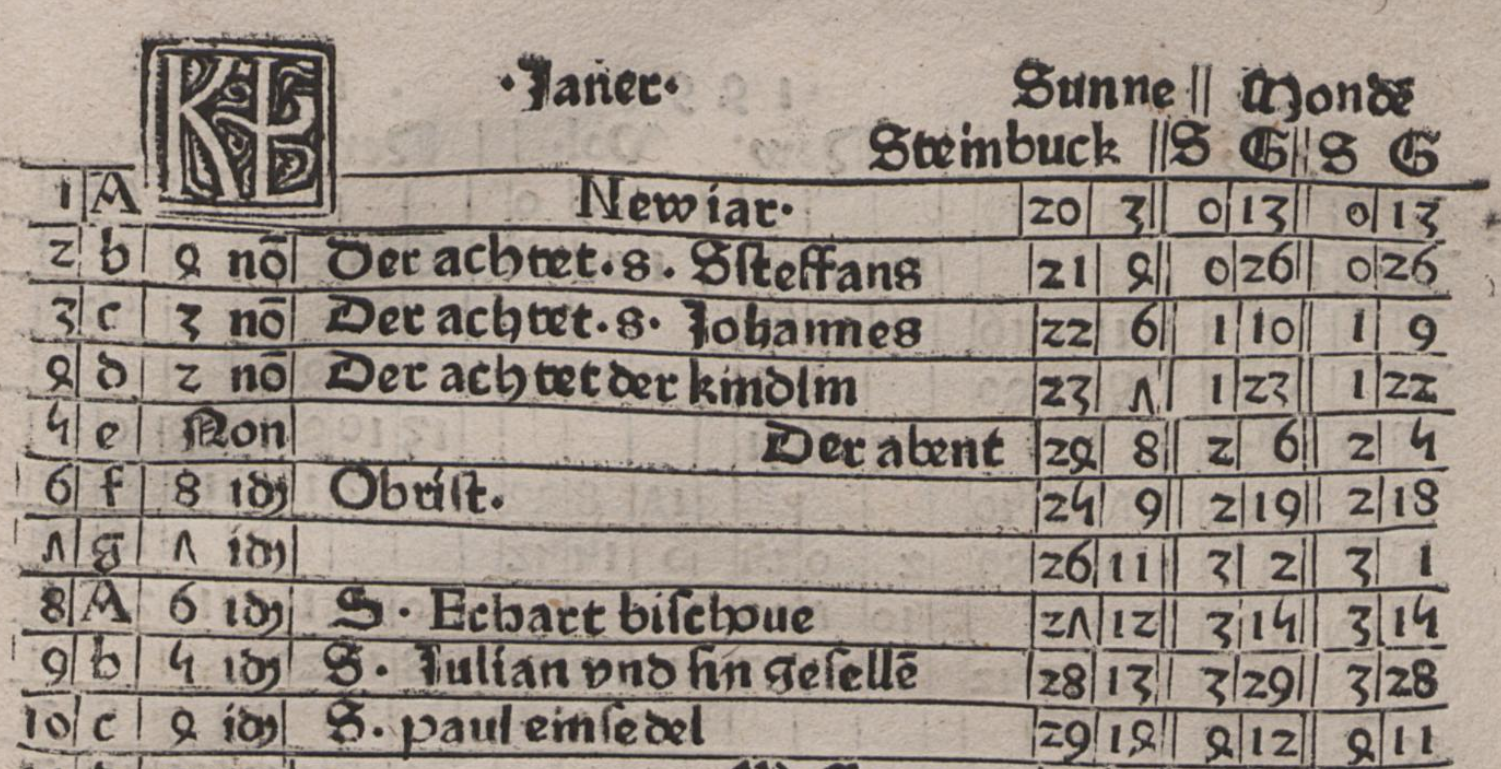 KL ·Janer· Sunne || Monde
Steinbuck || S G || S G
1 A Newiar· 20 3 0 13 0 13
2 b 4 nō Der achtet.s. Ssteffans 21 4 0 26 0 26
3 c 3 nō Der achtet.s. Johannes 22 6 1 10 1 9
4 d 2 nō Der achtet der kindlin 23 7 1 23 1 22
5 e Non Der abent 24 8 2 6 2 5
6 f 8 idꝰ Obrist. 25 9 2 19 2 18
7 g 7 idꝰ 26 11 3 2 3 1
8 A 6 idꝰ S. Echart bischoue 27 12 3 15 3 15
9 b 5 idꝰ S. Julian vnd sin gesellē 28 13 3 29 3 28
10 c 4 idꝰ S. paul einsedel 29 14 4 12 4 11